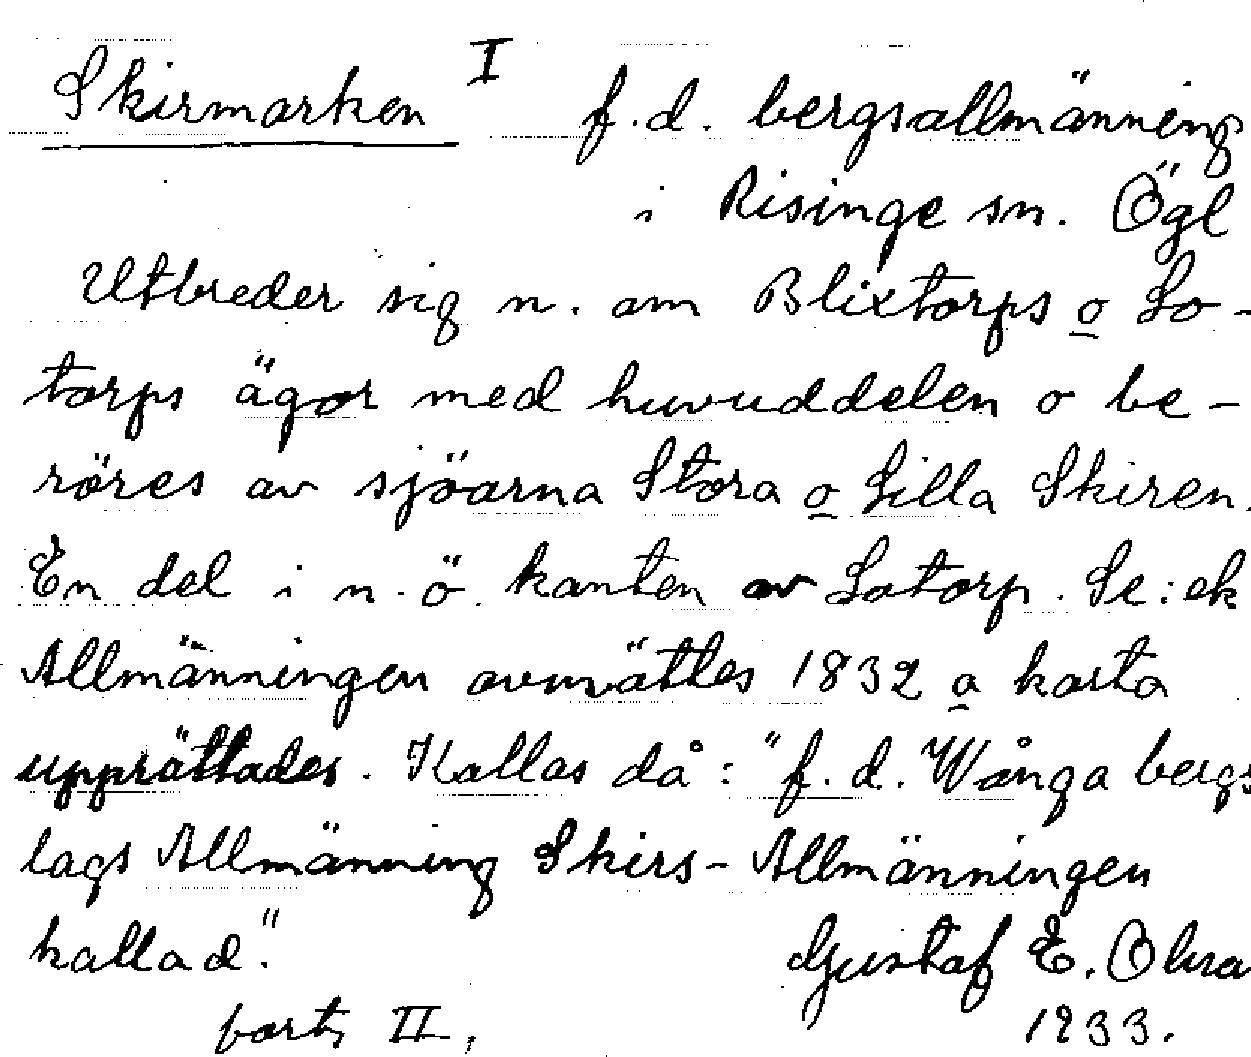 Skirmarken I f.d. bergsallmänning
i Risinge sn. Ögl
Utbreder sig n. om Blixtorps o Lo-
torps ägor med huvuddelen o be-
röres av sjöarna Stora o Lilla Skiren.
En del i n.ö. kanten av Lotorp. Se: ek
Allmänningen avmättes 1832 o karta
upprättades. Kallas då: "f.d. Wånga bergs
lags Allmänning Skirs-Allmänningen
kallad".
Gustaf E. Olura
forts II,
1933.